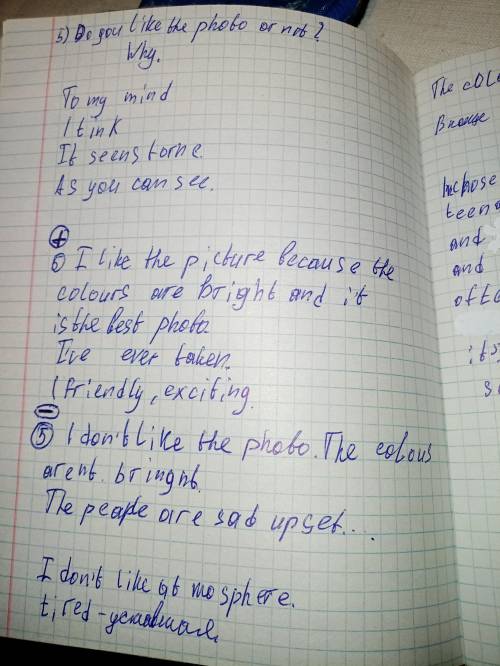 5) Do you like the photo or not?
Why.
To my mind
I tink
It seens tome.
As you can see.
+
5 I like the picture because the
colours are bright and it
is the best photo
I've ever taken.
(friendly, exciting.
−
5 I don't like the photo. The colous
arent. bringht.
The people are sad upset...
I don't like at mosphere.
tired - уставшая.
The col
В конце
I chose
teena
and
and
ofte
its
s